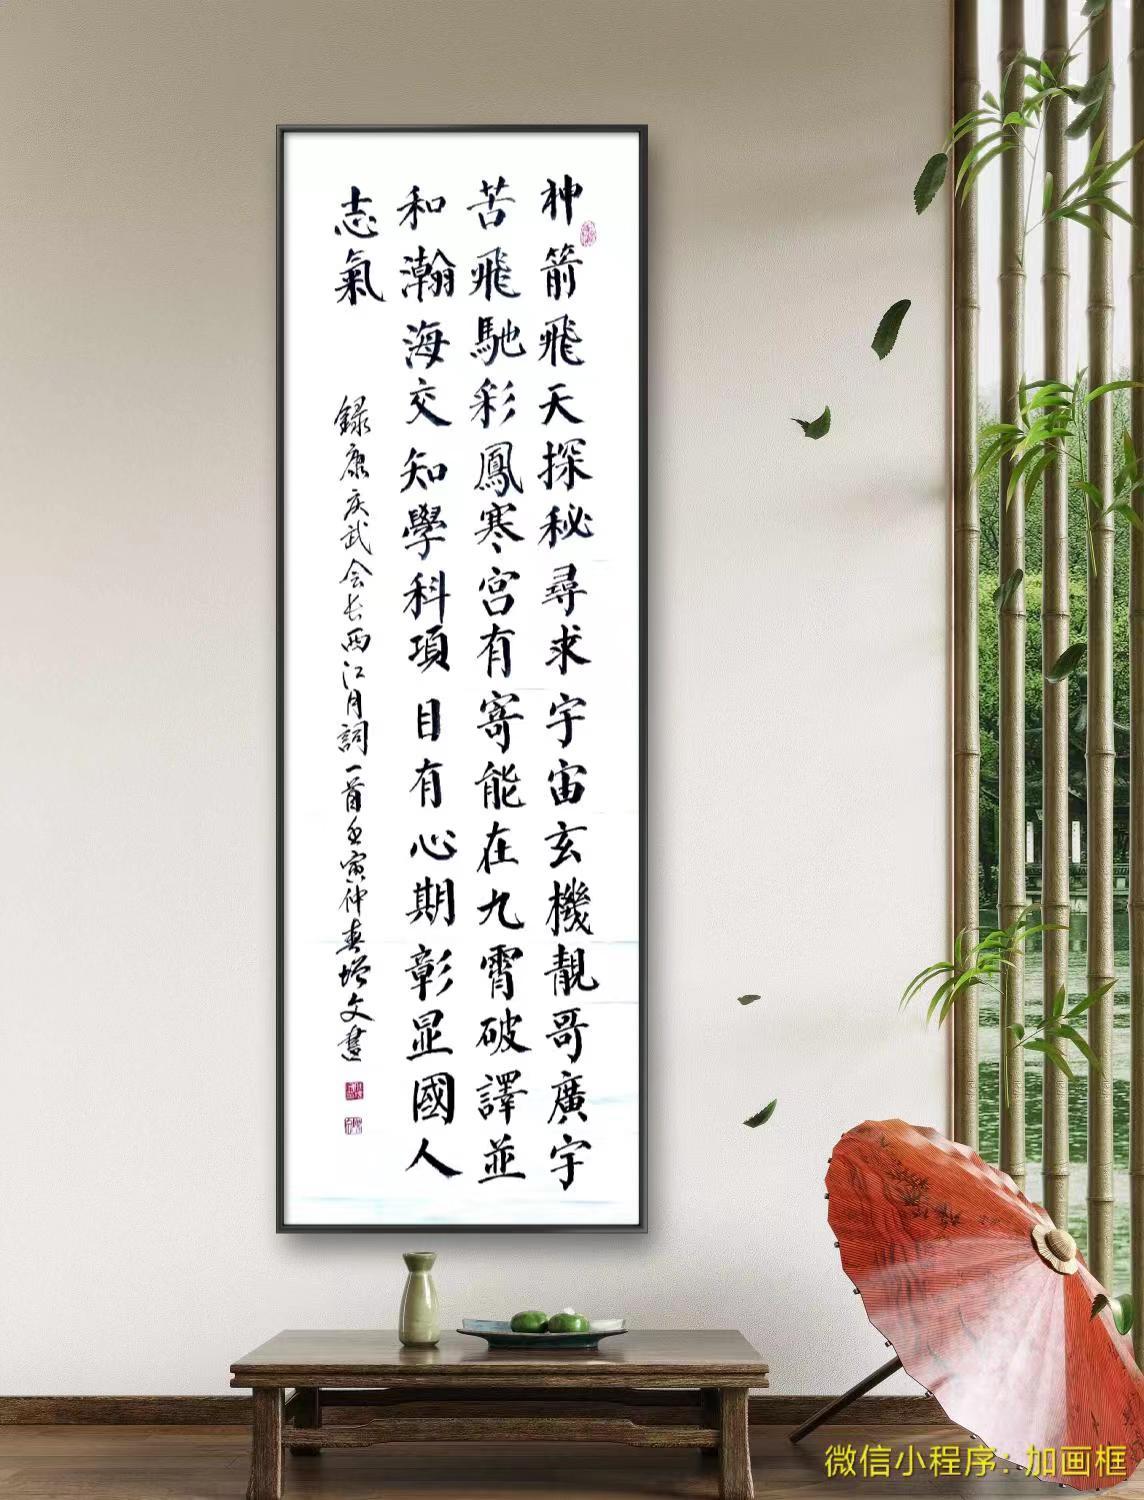 神箭飛天探秘尋求宇宙玄機靚哥廣宇
苦飛馳彩鳳寒宮有寄能在九霄破譯並
和瀚海交知學科項目有心期彰显國人
志氣
録康庆武会长西江月詞一首壬寅仲春增文書
微信小程序：加画框